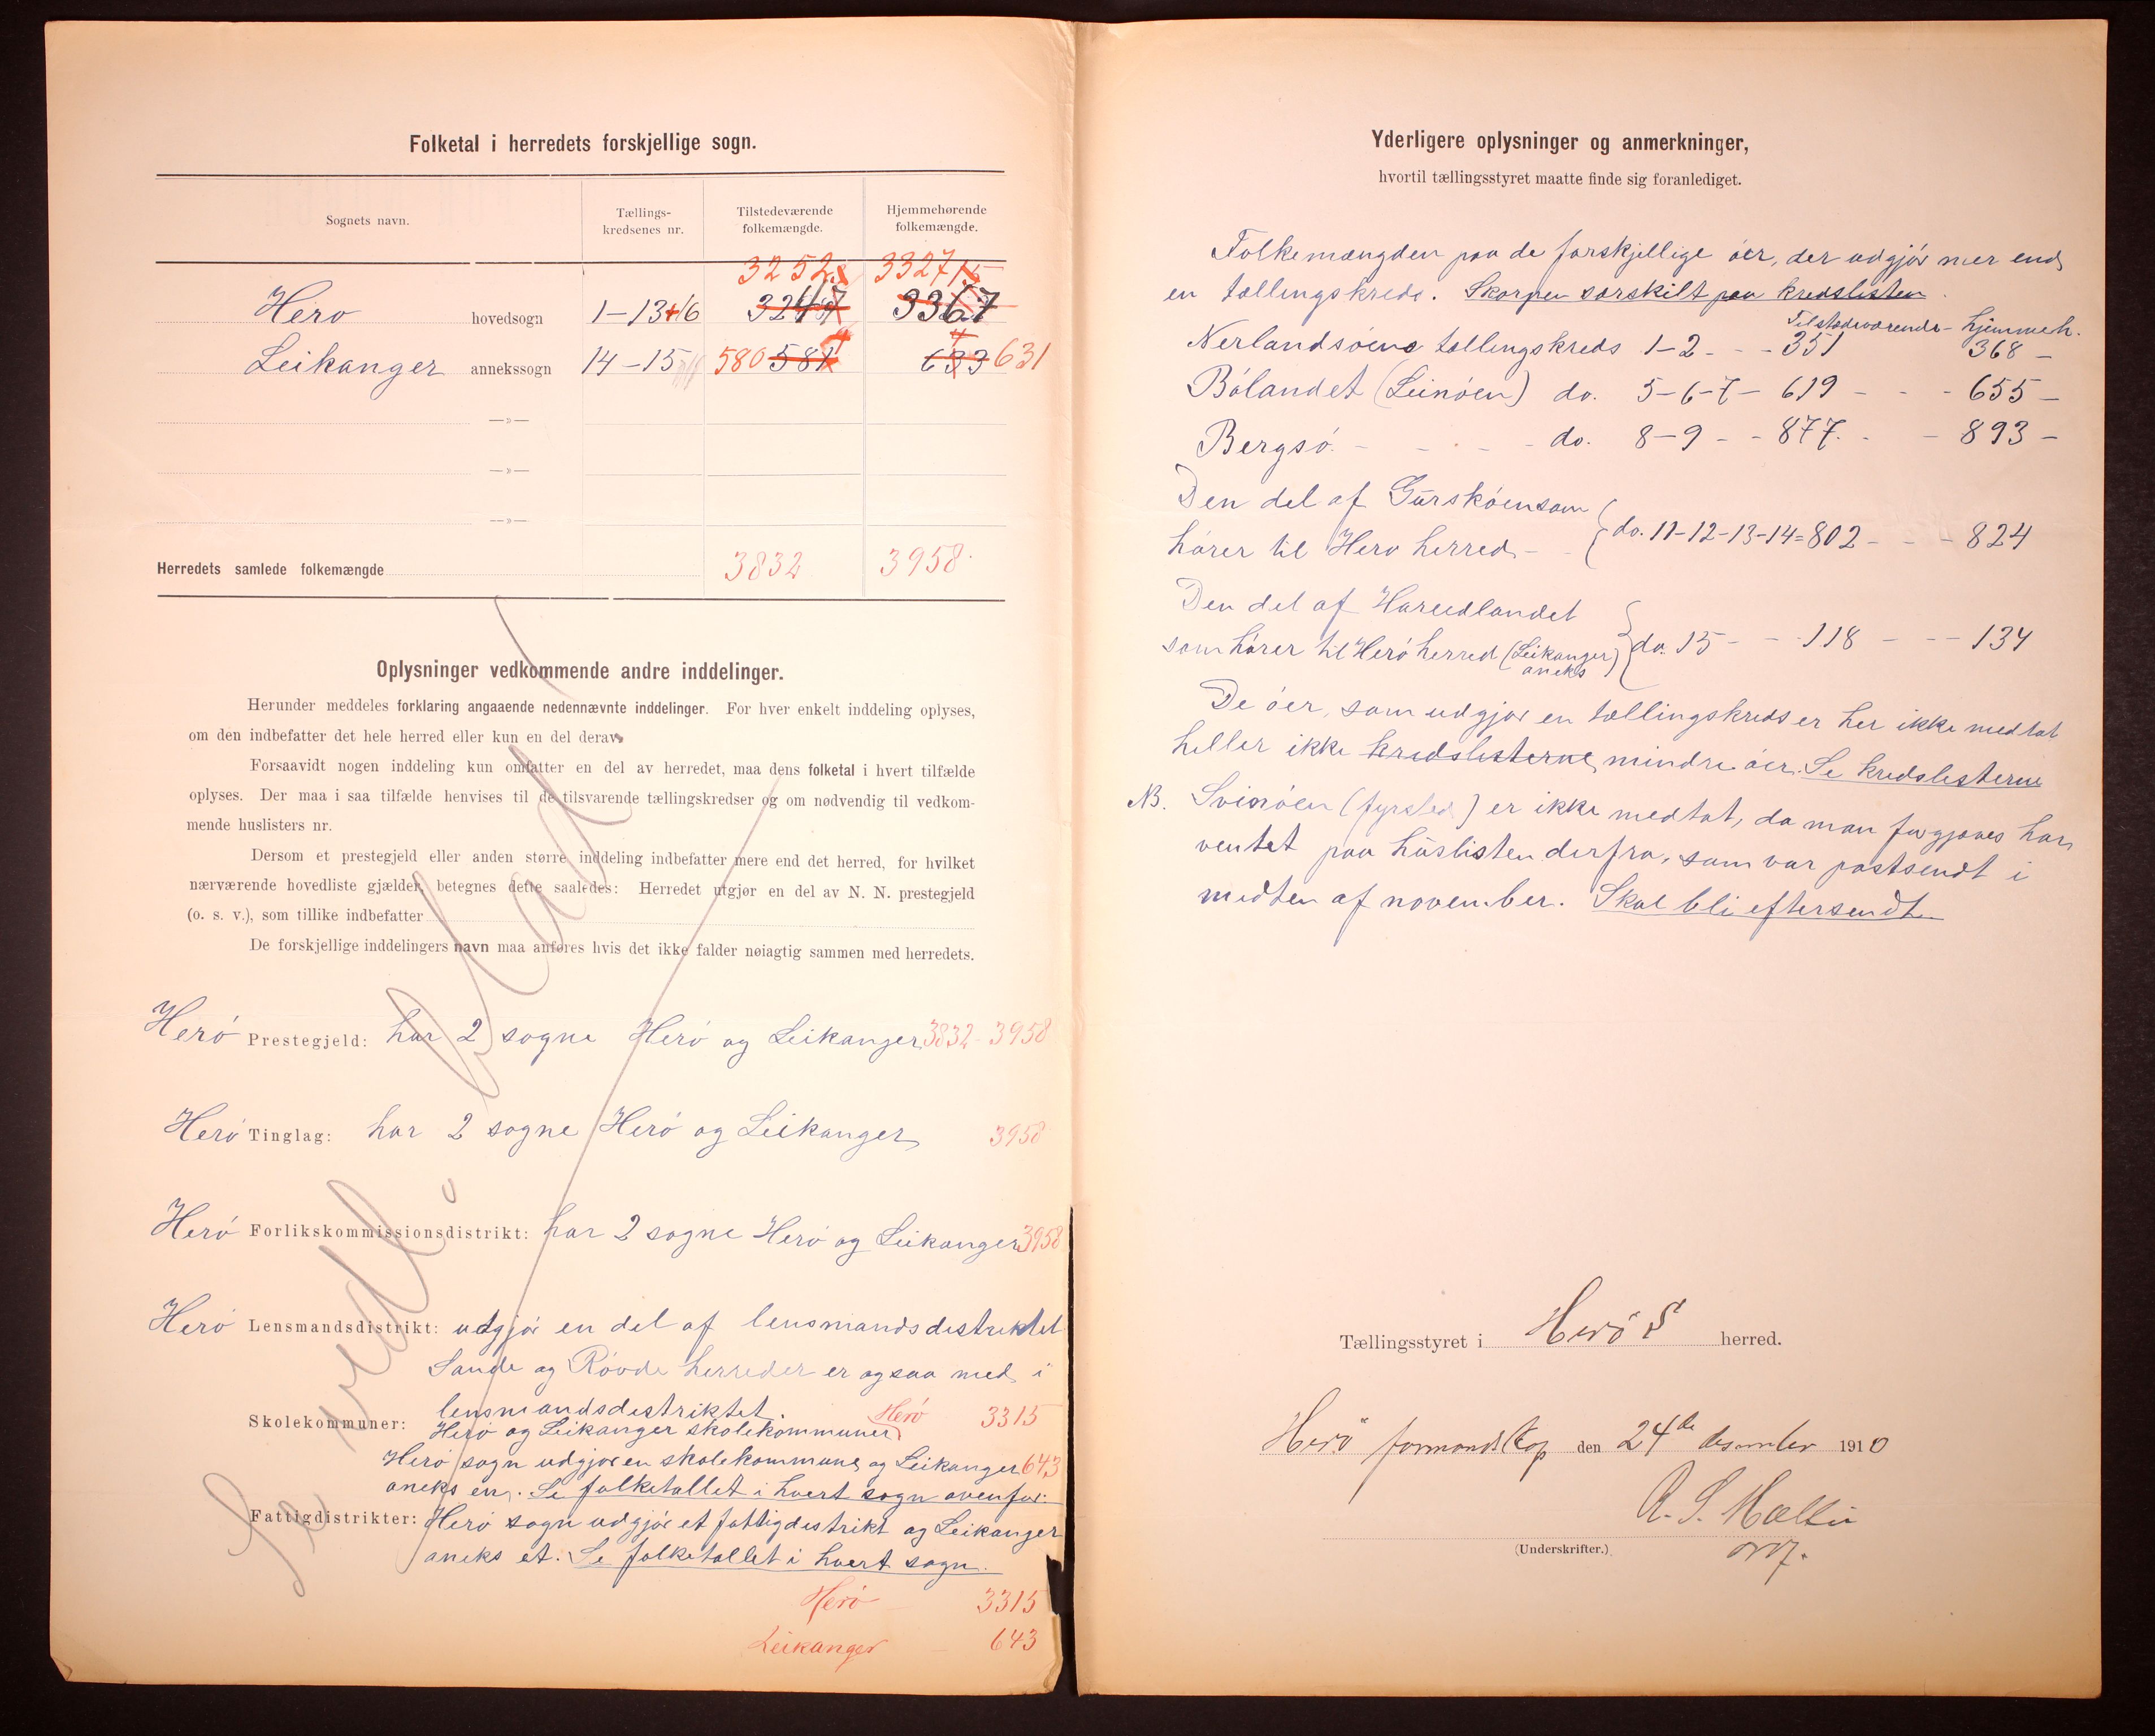 Folketal i herredets forskjellige sogn.
Sognets navn.
Tællings-
kredsenes nr.
Tilstedeværende
folkemængde.
Hjemmehørende
folkemængde.
3252 3327
Herø hovedsogn 1-13+16 3247 3367
Leikanger annekssogn 14-15 580 581 633 631
—»—
—»—
—»—
Herredets samlede folkemængde 3832 3958
Oplysninger vedkommende andre inddelinger.
Herunder meddeles forklaring angaaende nedennævnte inddelinger. For hver enkelt inddeling oplyses,
om den indbefatter det hele herred eller kun en del derav.
Forsaavidt nogen inddeling kun omfatter en del av herredet, maa dens folketal i hvert tilfælde
oplyses. Der maa i saa tilfælde henvises til de tilsvarende tællingskredser og om nødvendig til vedkom-
mende huslisters nr.
Dersom et prestegjeld eller anden større inddeling indbefatter mere end det herred, for hvilket
nærværende hovedliste gjælder, betegnes dette saaledes: Herredet utgjør en del av N. N. prestegjeld
(o. s. v.), som tillike indbefatter
De forskjellige inddelingers navn maa anføres hvis det ikke falder nøiagtig sammen med herredets.
Herø Prestegjeld: har 2 sogne Herø og Leikanger 3832 - 3958
Herø Tinglag: har 2 sogne Herø og Leikanger 3958
Herø Forlikskommissionsdistrikt: har 2 sogne Herø og Leikanger 3958
Herø Lensmandsdistrikt: udgjør en del af lensmandsdistriktet
Sande og Røvde herreder er ogsaa med i
lensmandsdistriktet. Herø 3315
Skolekommuner: Herø og Leikanger skolekommuner
Herø sogn udgjør en skolekommune og Leikanger 643
aneks en. Se folketallet i hvert sogn ovenfor.
Fattigdistrikter: Herø sogn udgjør et fattigdistrikt og Leikanger
aneks et. Se folketallet i hvert sogn.
Herø 3315
Leikanger 643
Se vedl. blad!
Yderligere oplysninger og anmerkninger,
hvortil tællingsstyret maatte finde sig foranlediget.
Folkemængden paa de forskjellige øer, der udgjør mer end
en tællingskreds. Skorpen særskilt paa kredslisten.
Tilstedeværende - hjemmeh.
Nerlandsøens tællingskreds 1-2 - - 351 368 -
Bølandet (Leinøen) do. 5-6-7 - 619 - - - 655 -
Bergsø. - - - - do. 8-9 - - 877. - - 893 -
Den del af Gurskøen som
hører til Herø herred - - do. 11-12-13-14 = 802 - - - 824
Den del af Hareidlandet
som hører til Herø herred (Leikanger
aneks) do. 15 - - - 118 - - - 134
De øer, som udgjør en tællingskreds er her ikke medtat
heller ikke kredslisterne mindre øer. Se kredslisterne
NB. Svinøen (fyrsted) er ikke medtat, da man forgjæves har
ventet paa huslisten derfra, som var postsendt i
midten af november. Skal bli eftersendt
Tællingsstyret i Herø S herred.
Herø formandskap den 24de desember 1910
(Underskrifter.)